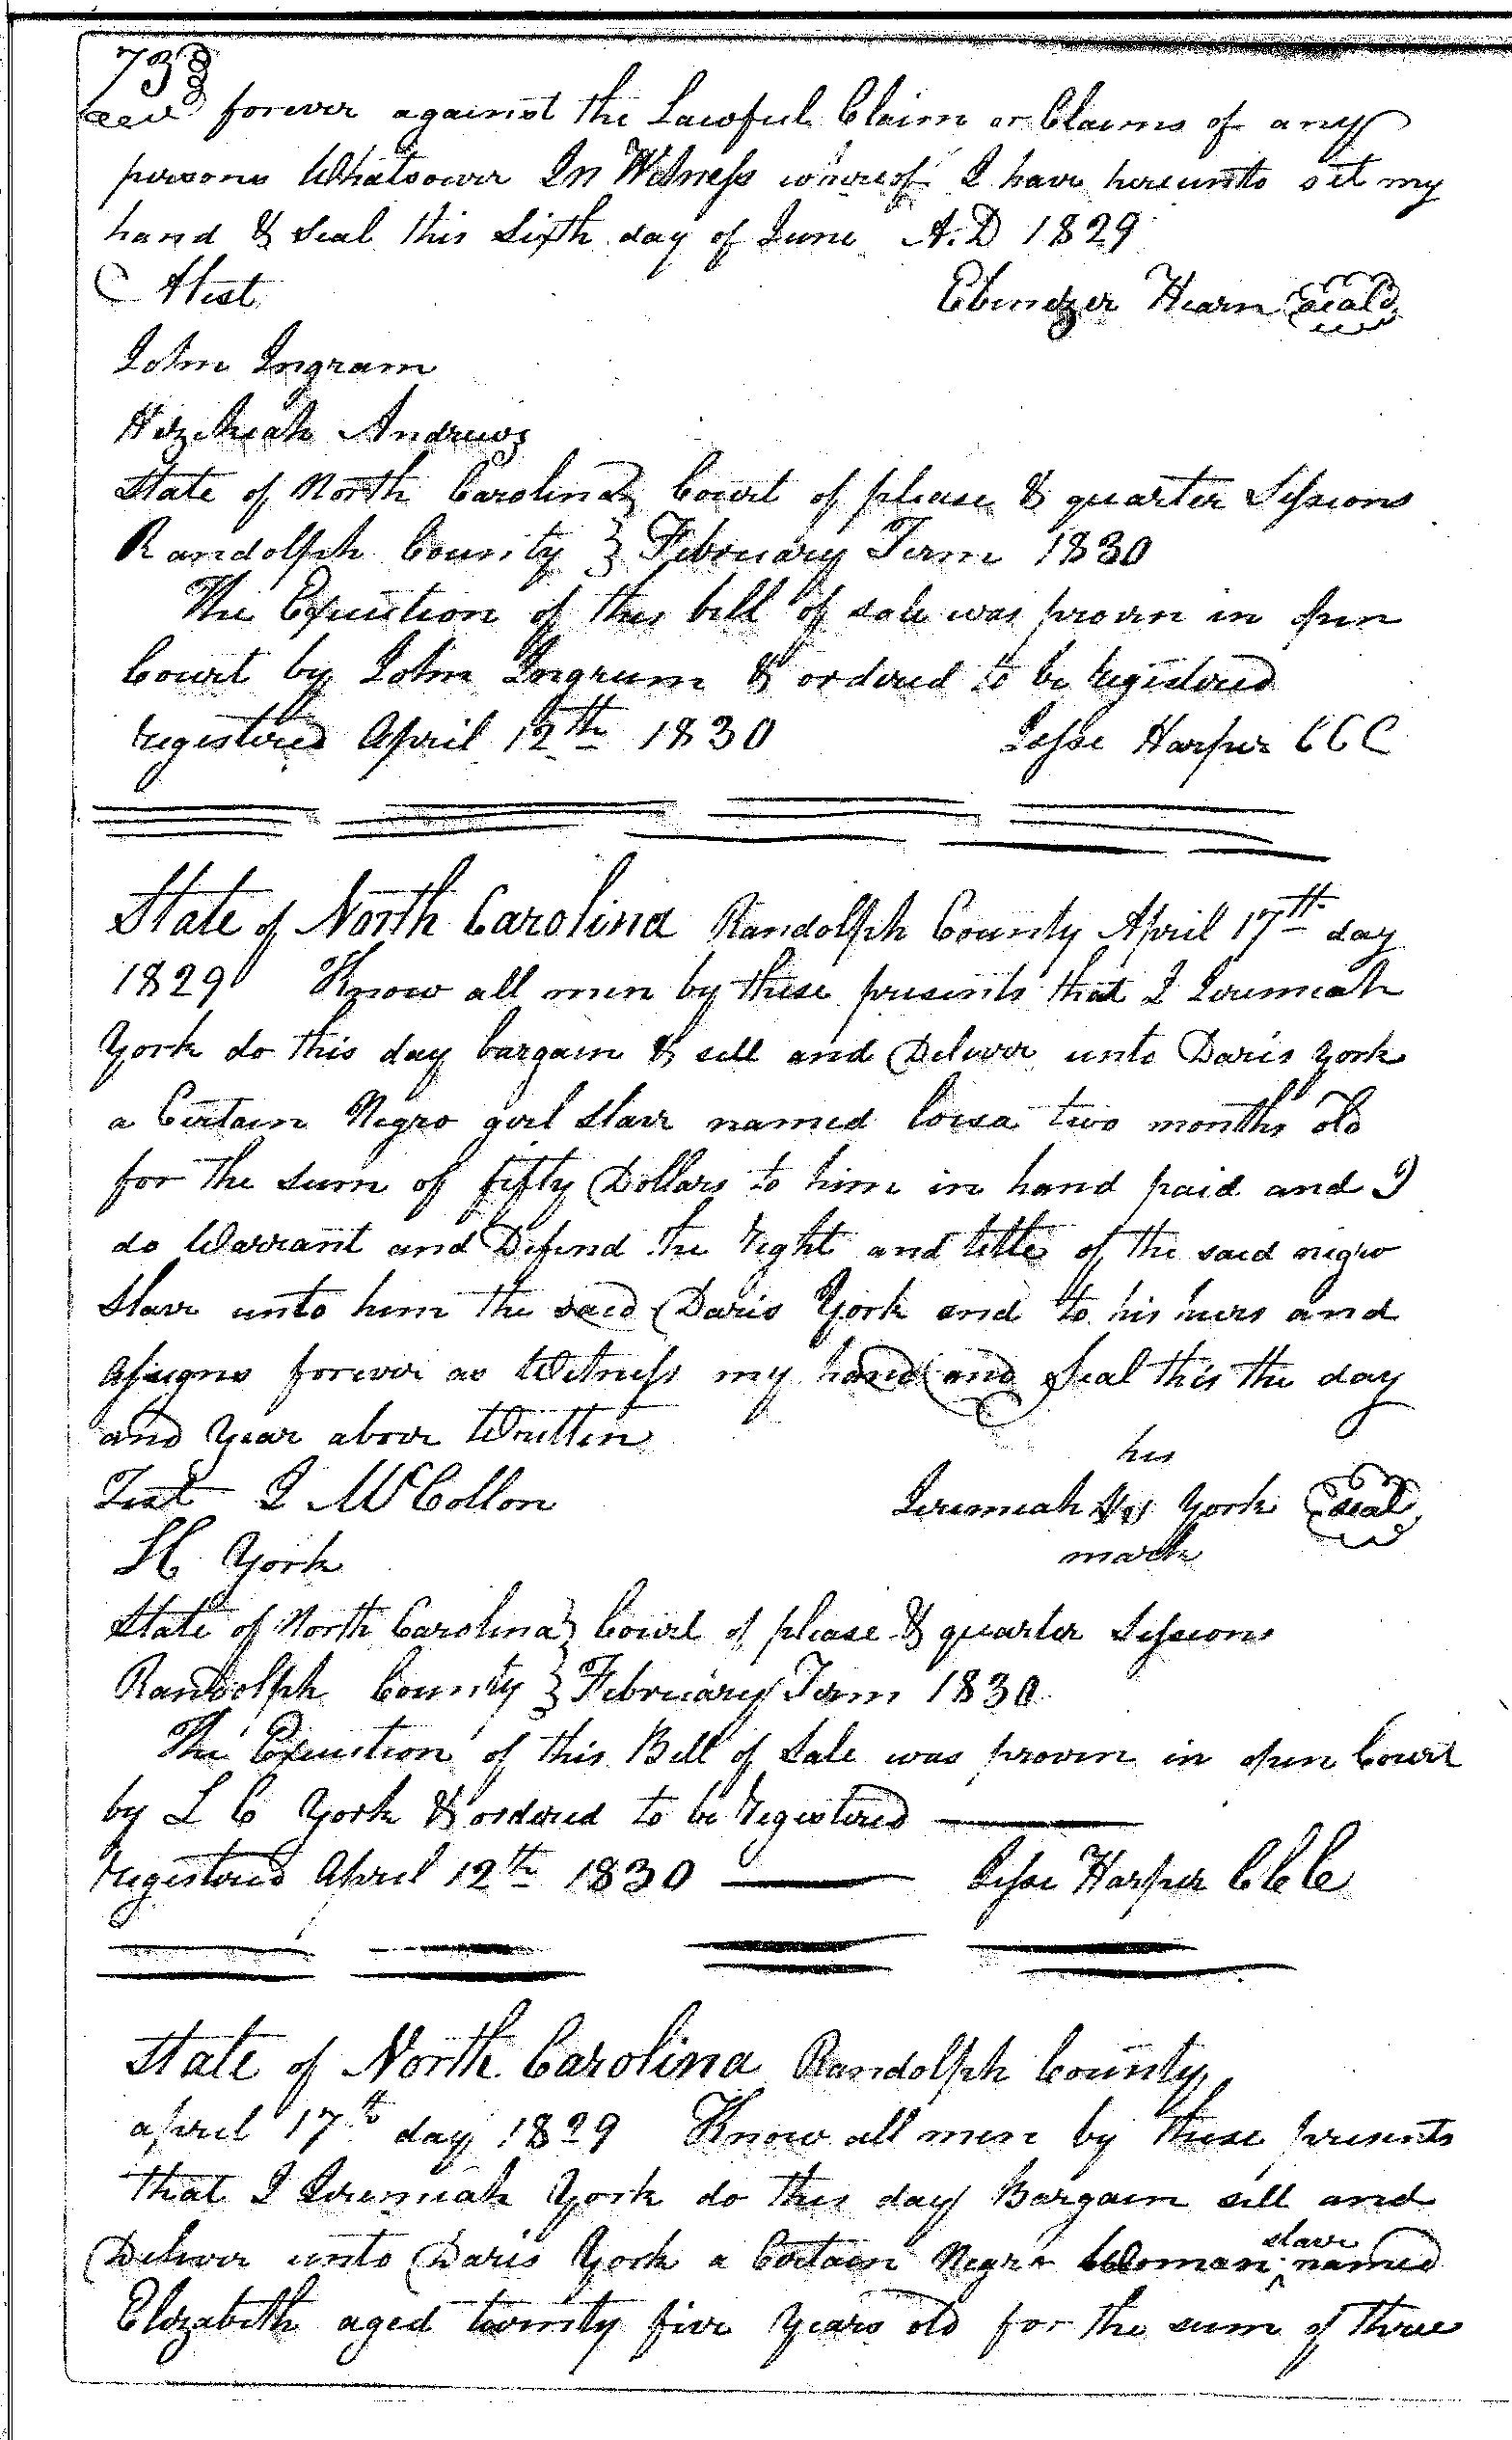 733
forever against the Lawful Claim or Claims of any
persons Whatsoever In Witness whereof I have hereunto set my
hand & Seal this Sixth day of June A.D 1829
Attest
Ebenezer Hearn seal
John Ingram
Hezekiah Andrews
State of North Carolina } Court of please & quarter Sessions
Randolph County } February Term 1830
The Execution of this bill of sale was proven in open
Court by John Ingrum & ordered to be registered
registered April 12th 1830 Jesse Harper CCC
State of North Carolina Randolph County April 17th day
1829 Know all men by these presents that I Jeremiah
York do this day bargain & sell and Deliver unto Daris York
a Certain Negro girl Slave named Losa two months old
for the sum of fifty Dollars to him in hand paid and I
do Warrant and Defend the right and title of the said negro
Slave unto him the said Daris York and to his heirs and
assigns forever as Witness my hand and Seal this the day
and Year above Written
his
Test J McCollon Jeremiah York seal
mark
L C York
State of North Carolina } Court of please & quarter Sessions
Randolph County } February Term 1830
The Execution of this Bill of Sale was proven in open Court
by L C York & ordered to be registered
registered April 12th 1830 Jesse Harper CCC
State of North Carolina Randolph County
april 17th day 1829 Know all men by these presents
that I Jeremiah York do this day Bargain sell and
Deliver unto Daris York a Certain Negro Woman slave named
Elizabeth aged twenty five Years old for the sum of three